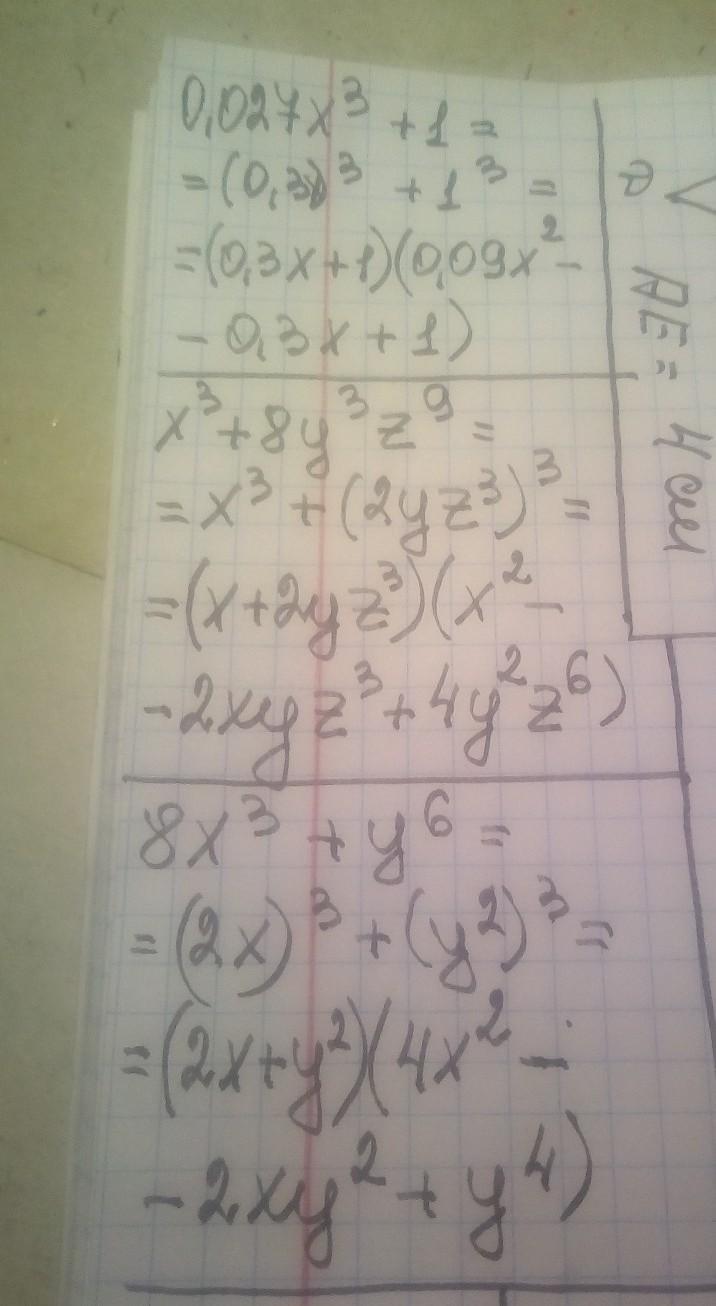 0,027x³ + 1 =
= (0,3)³ + 1³ =
= (0,3x + 1)(0,09x² -
- 0,3x + 1)
x³ + 8y³z⁹ =
= x³ + (2yz³)³ =
= (x + 2yz³)(x² -
- 2xyz³ + 4y²z⁶)
8x³ + y⁶ =
= (2x)³ + (y²)³ =
= (2x + y²)(4x² -
- 2xy² + y⁴)
AE = 4 см